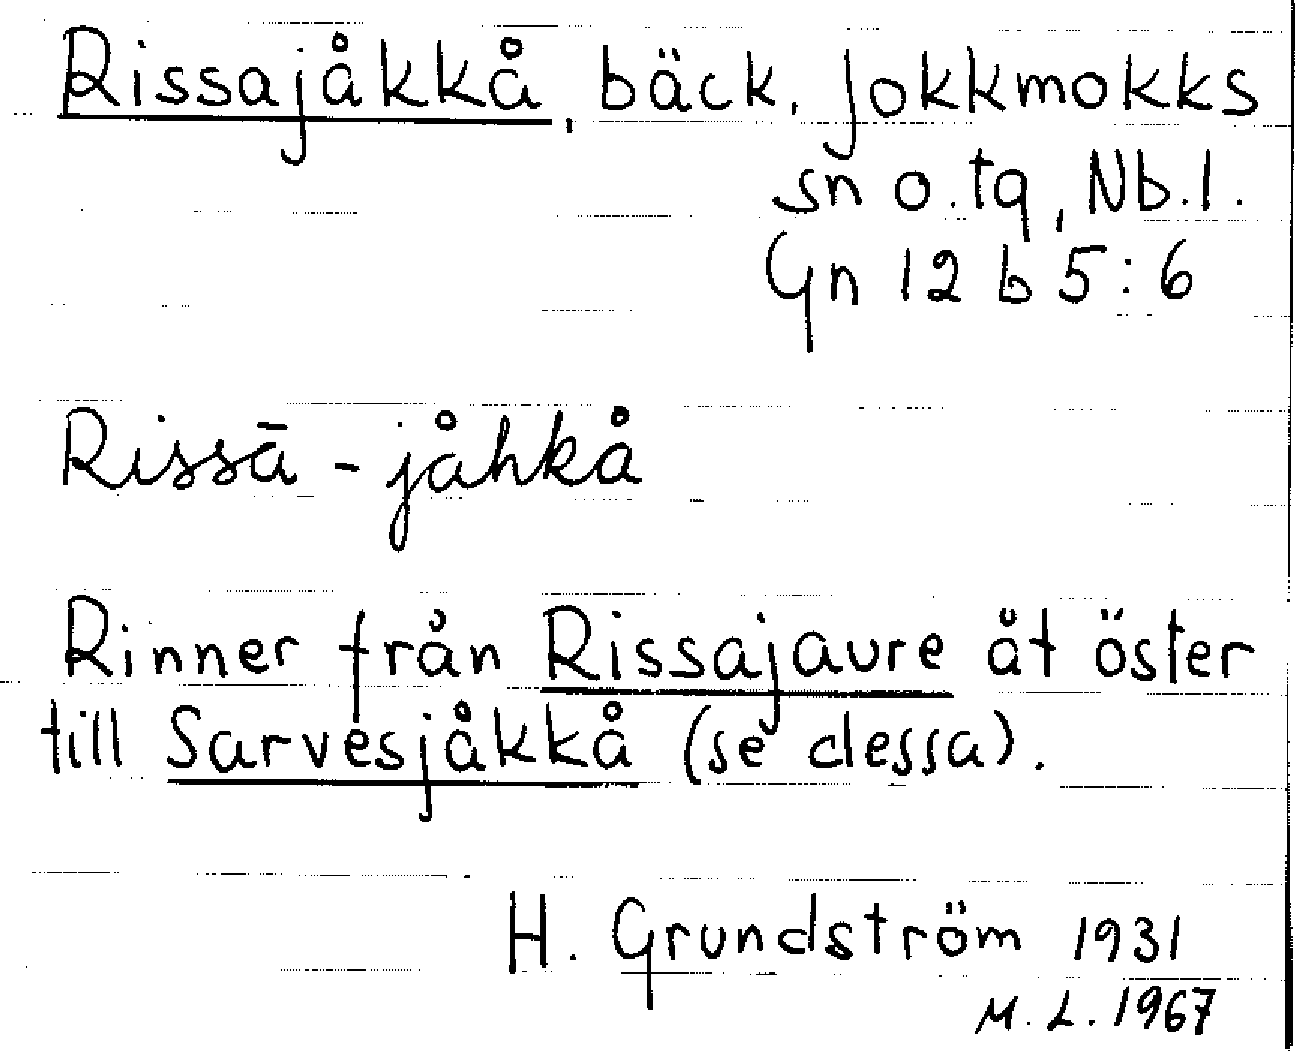 Rissajåkkå, bäck, Jokkmokks
sn o. tg, Nb. l.
Gn 12 b 5:6
Rissā - jåhkå
Rinner från Rissajaure åt öster
till Sarvesjåkkå (se dessa).
H. Grundström 1931
M. L. 1967